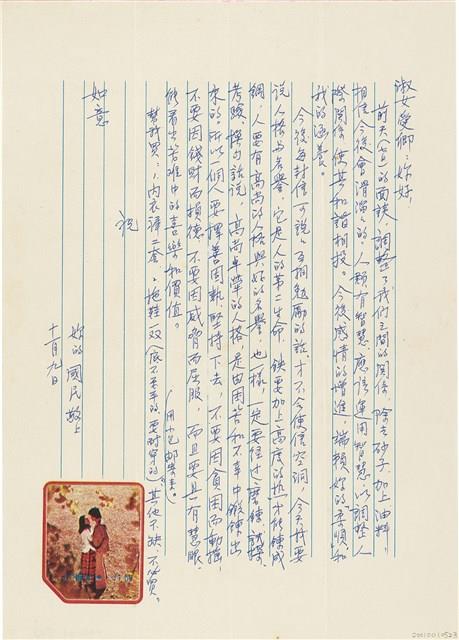 淑女愛卿:妳好,
前天(七)的面談,調整了我們之間的關係,除去砂子,加上油料,
相信今後會滑溜的。人類有智慧,應該運用智慧,以調整人
際關係,使其和諧相投。今後感情的增進,端賴妳的「柔順」和
我的涵養。
今後每封信,可說些互相勉勵的話,才不令使信空洞,今天我要
說人格与名譽,它是人的第二生命,鉄要加上高度的熱才能煉成
鋼,人要有高尚的人格與好的名譽,也一樣,一定要經过磨鍊,試探,
考驗,換句話說,高尚卓榮的人格是由困苦和不幸中鍛鍊出
來的,所以一個人要擇善固執,堅持下去,不要因貧困而動搖,
不要因錢財而損德,不要因威脅而屈服,而且要具有慧眼,
能看出苦难中的喜樂和價值。
(用小包郵寄來)
替我買:1,內衣褲二套 拖鞋一双(底不要平的,要耐穿的),其他不缺,不必買。
祝
如意
妳的 國民 敬上
十一月九日
20010010523